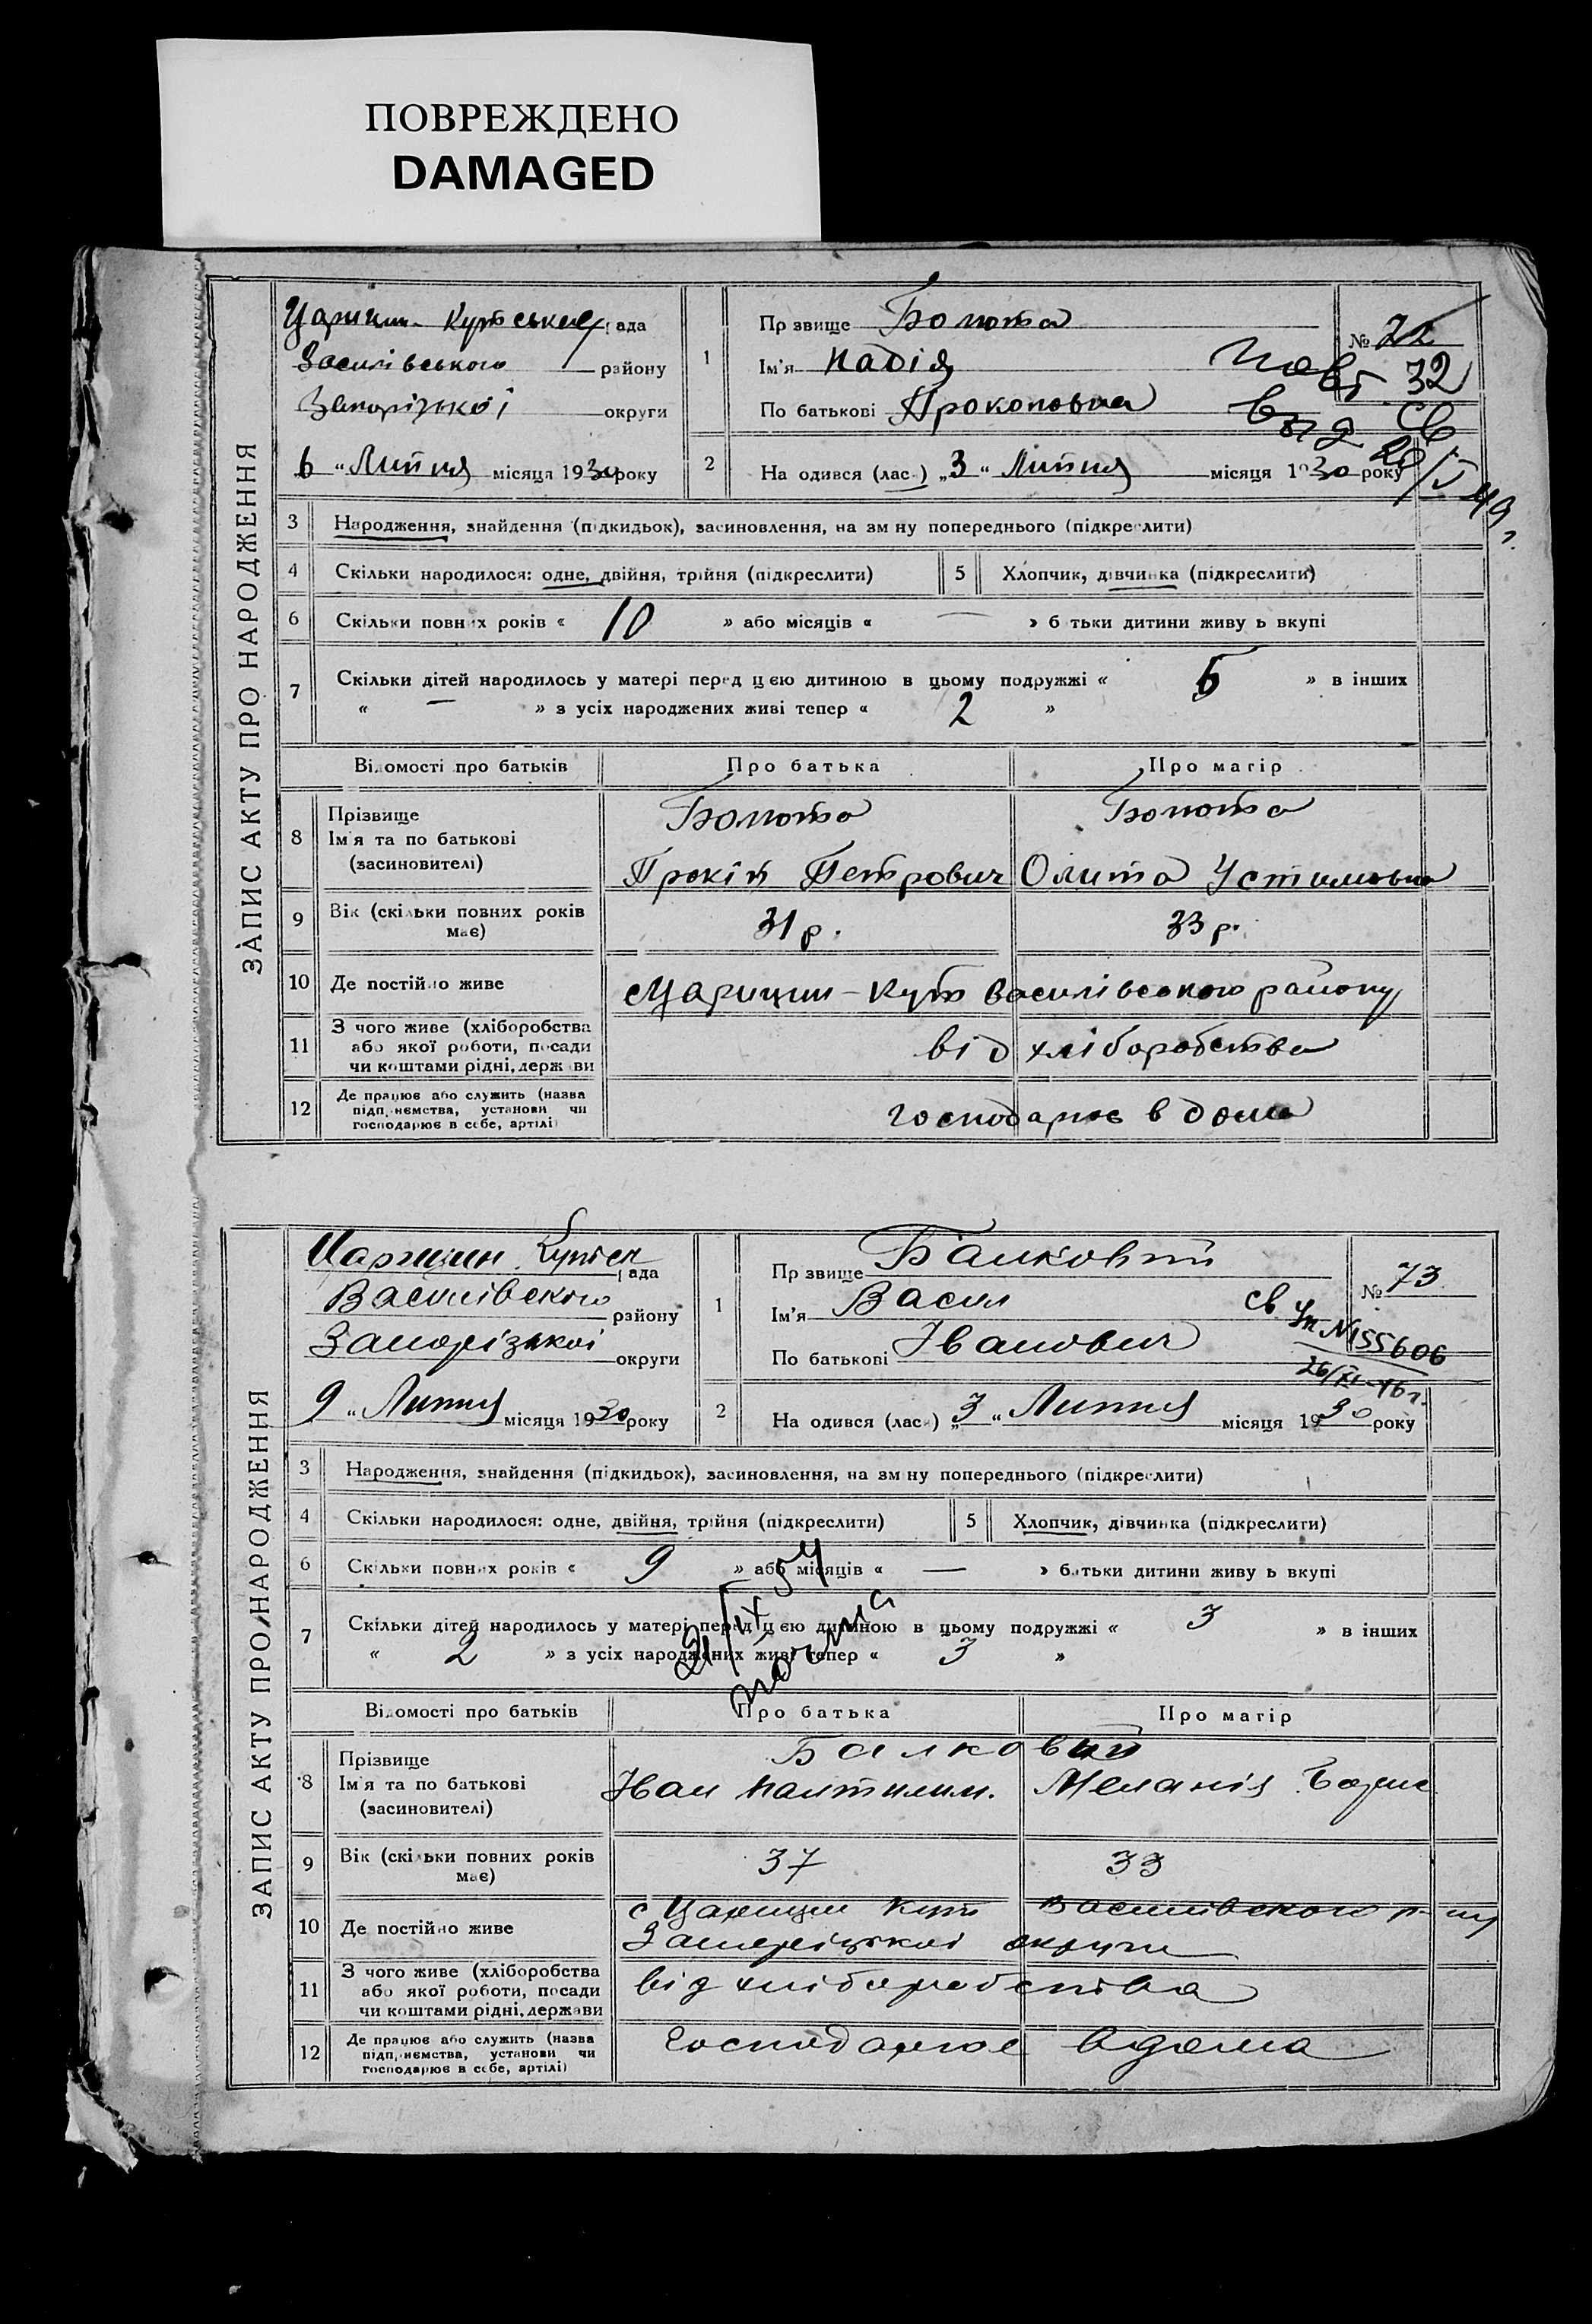 ПОВРЕЖДЕНО
DAMAGED
ЗАПИС АКТУ ПРО НАРОДЖЕННЯ
Царицин-Кутської рада
Василівського району
Запорізкої округи
6 " Липня місяця 1930 року
1
Прізвище Болюта
Ім'я Надія
По батькові Прокоповна
№ 72
32
выд св
20/V 49 г.
2
На одився (лас.) „3 " Липня місяця 1930 року
3 Народження, знайдення (підкидьок), засиновлення, на зм ну попереднього (підкреслити)
4 Скільки народилося: одне, двійня, трійня (підкреслити) 5 Хлопчик, дівчинка (підкреслити)
6 Скільки повних років « 10 » або місяців « — » б тьки дитини живу ь вкупі
7 Скільки дітей народилось у матері перед цією дитиною в цьому подружжі « 5 » в інших
« — » з усіх народжених живі тепер « 2 »
Відомості про батьків Про батька Про матір
8 Прізвище Болюта Болюта
Ім'я та по батькові
(засиновителі) Прокіп Петрович Устимовна
9 Вік (скільки повних років має) 31 р. 33 р.
10 Де постійно живе с Царицин-Кут Василівського району
11 З чого живе (хліборобства
або якої роботи, посади
чи коштами рідні, держави від хліборобства
12 Де працює або служить (назва
підприємства, установи чи
господарює в себе, артілі) господарює в дома
ЗАПИС АКТУ ПРО НАРОДЖЕННЯ
Царицин Кутск рада
Василівского району
Запорізкої округи
9 " Липня місяця 1930 року
1
Прізвище Балковий
Ім'я Васил
По батькові Іванович
№ 73
св. N155606
26/XI-46 г.
2
На одився (лас.) „3 " Липня місяця 1930 року
3 Народження, знайдення (підкидьок), засиновлення, на зм ну попереднього (підкреслити)
4 Скільки народилося: одне, двійня, трійня (підкреслити) 5 Хлопчик, дівчинка (підкреслити)
6 Скільки повних років « 9 » або місяців « — » батьки дитини живу ь вкупі
7 Скільки дітей народилось у матері перед цією дитиною в цьому подружжі « 3 » в інших
« 2 » з усіх народжених живі тепер « 3 »
21/IX 54
Відомості про батьків Про батька Про матір
8 Прізвище Балковий
Ім'я та по батькові Іван Пантилим. Меланія
(засиновителі)
9 Вік (скільки повних років має) 37 33
10 Де постійно живе с Царицин Кут Василівского р-ну
Запоріцької округи
11 З чого живе (хліборобства
або якої роботи, посади
чи коштами рідні, держави від хліборобства
12 Де працює або служить (назва
підприємства, установи чи
господарює в себе, артілі) господарює вдома